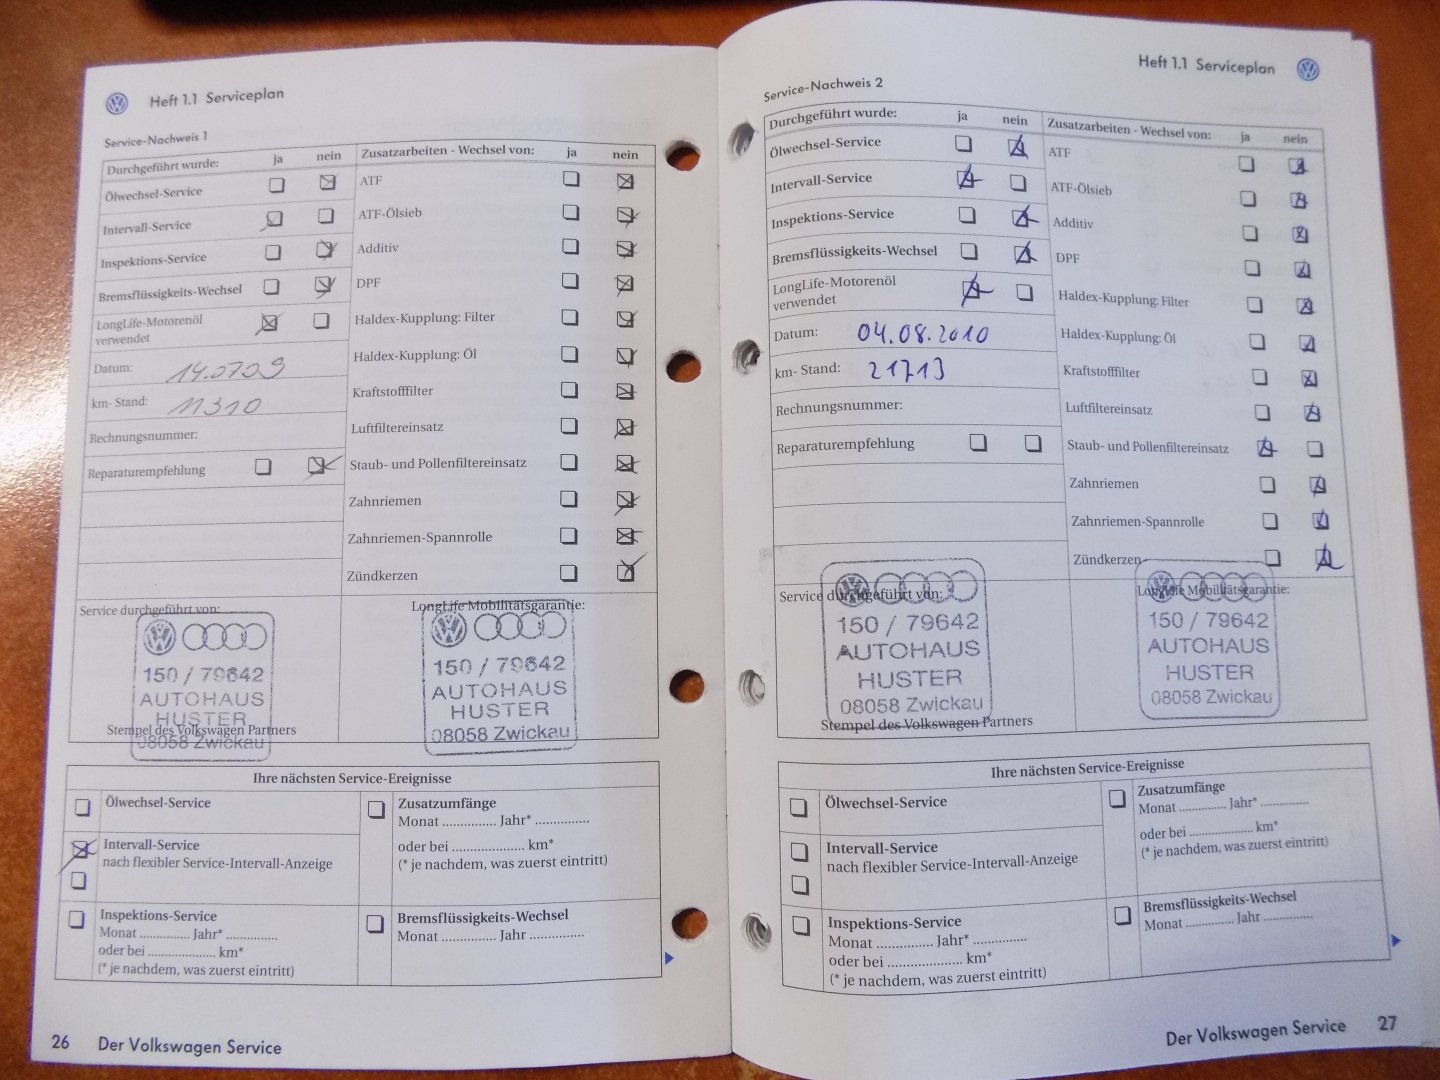 Heft 1.1 Serviceplan
Service-Nachweis 1
Durchgeführt wurde: ja nein
Ölwechsel-Service
Intervall-Service
Inspektions-Service
Bremsflüssigkeits-Wechsel
LongLife-Motorenöl
verwendet
Datum: 14.0709
km- Stand: 11310
Rechnungsnummer:
Reparaturempfehlung
Zusatzarbeiten - Wechsel von: ja nein
ATF
ATF-Ölsieb
Additiv
DPF
Haldex-Kupplung: Filter
Haldex-Kupplung: Öl
Kraftstofffilter
Luftfiltereinsatz
Staub- und Pollenfiltereinsatz
Zahnriemen
Zahnriemen-Spannrolle
Zündkerzen
Service durchgeführt von:
150 / 79642
AUTOHAUS
HUSTER
08058 Zwickau
Stempel des Volkswagen Partners
LongLife Mobilitätsgarantie:
150 / 79642
AUTOHAUS
HUSTER
08058 Zwickau
Ihre nächsten Service-Ereignisse
Ölwechsel-Service
Intervall-Service
nach flexibler Service-Intervall-Anzeige
Inspektions-Service
Monat .............. Jahr* ..............
oder bei .................... km*
(* je nachdem, was zuerst eintritt)
Zusatzumfänge
Monat ............... Jahr* ...............
oder bei .................... km*
(* je nachdem, was zuerst eintritt)
Bremsflüssigkeits-Wechsel
Monat ............... Jahr ...............
26 Der Volkswagen Service
Heft 1.1 Serviceplan
Service-Nachweis 2
Durchgeführt wurde: ja nein
Ölwechsel-Service
Intervall-Service
Inspektions-Service
Bremsflüssigkeits-Wechsel
LongLife-Motorenöl
verwendet
Datum: 04.08.2010
km- Stand: 21713
Rechnungsnummer:
Reparaturempfehlung
Zusatzarbeiten - Wechsel von: ja nein
ATF
ATF-Ölsieb
Additiv
DPF
Haldex-Kupplung: Filter
Haldex-Kupplung: Öl
Kraftstofffilter
Luftfiltereinsatz
Staub- und Pollenfiltereinsatz
Zahnriemen
Zahnriemen-Spannrolle
Zündkerzen
Service durchgeführt von:
150 / 79642
AUTOHAUS
HUSTER
08058 Zwickau
Stempel des Volkswagen Partners
LongLife Mobilitätsgarantie:
150 / 79642
AUTOHAUS
HUSTER
08058 Zwickau
Ihre nächsten Service-Ereignisse
Ölwechsel-Service
Intervall-Service
nach flexibler Service-Intervall-Anzeige
Inspektions-Service
Monat ............... Jahr* ..............
oder bei .................... km*
(* je nachdem, was zuerst eintritt)
Zusatzumfänge
Monat ............. Jahr* .............
oder bei .................... km*
(* je nachdem, was zuerst eintritt)
Bremsflüssigkeits-Wechsel
Monat .............. Jahr ..............
Der Volkswagen Service 27